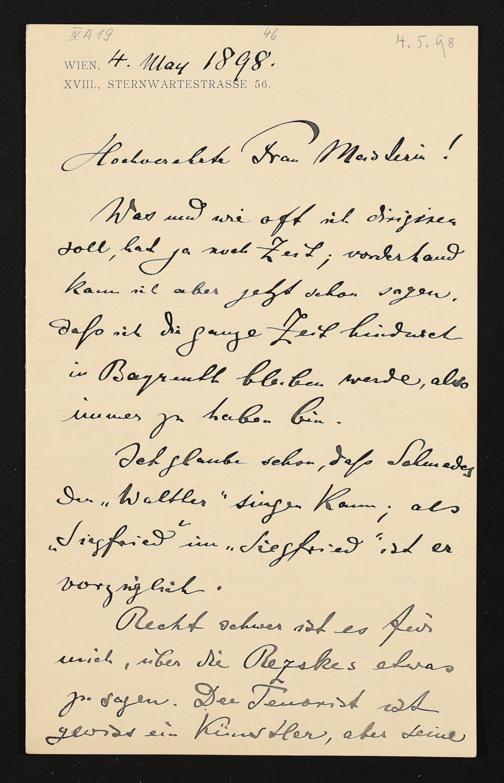 IV A 19 46 4.5.98
WIEN, 4. May 1898.
XVIII., STERNWARTESTRASSE 56.
Hochverehrte Frau Meisterin!
Was und wie oft ich dirigiren
soll, hat ja noch Zeit; vorderhand
kann ich aber jetzt schon sagen,
daß ich die ganze Zeit hindurch
in Bayreuth bleiben werde, also
immer zu haben bin.
Ich glaube schon, daß Schmedes
den „Walther“ singen kann; als
„Siegfried“ im „Siegfried“ ist er
vorzüglich.
Recht schwer ist es für
mich, über die Rezskes etwas
zu sagen. Der Tenorist ist
gewiss ein Künstler, aber seine